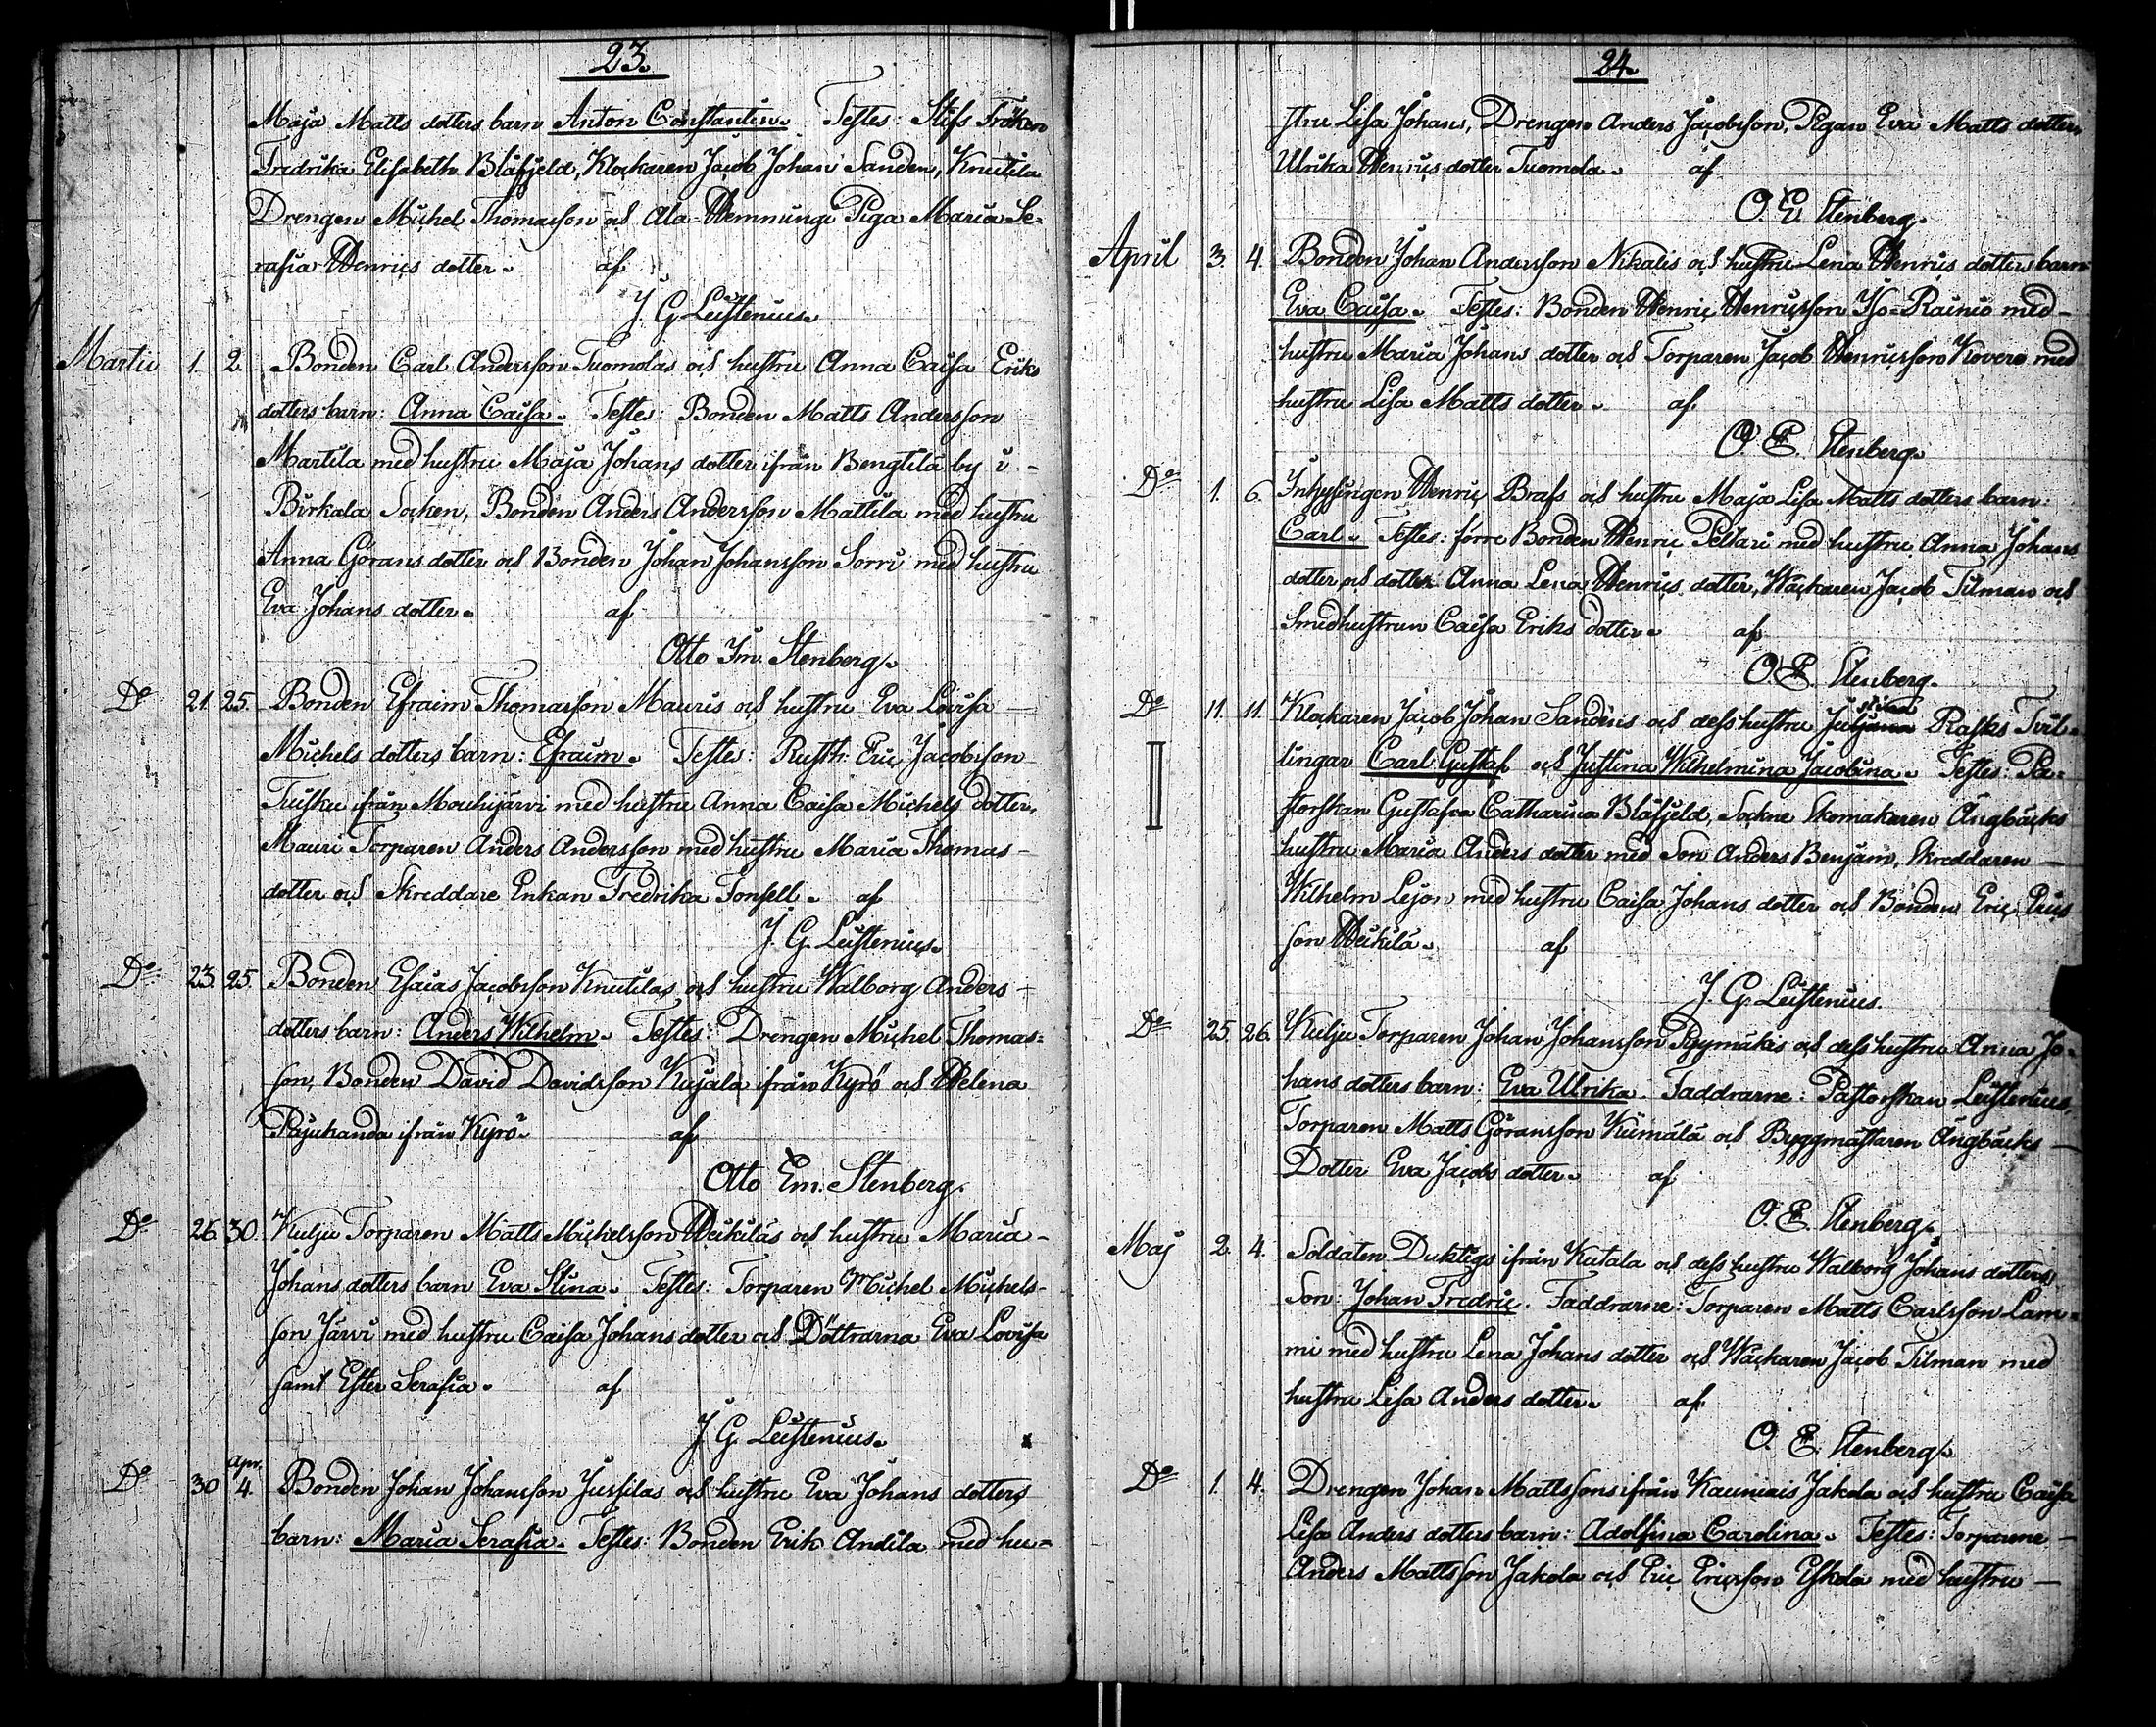 23.
Maja Matts dotters barn Anton Constantin. Testes: Stifs Fröken
Fredrika Elisabeth Blåfjeld, Klockaren Jacob Johan Sanden, Knutila
Drengen Michel Thomasson och Ala-Hemmingi Piga Maria Se-
rafia Henrics dotter. af
J. G. Leistenius.
Martii 1. 2. Bonden Carl Andersson Tuomolas och hustru Anna Caisa Eriks
dotters barn: Anna Caisa. Testes: Bonden Matts Andersson
Martila med hustru Maja Johans dotter ifrån Bengtilä by i
Birkala Socken, Bonden Anders Andersson Mattila med hustru
Anna Görans dotter och Bonden Johan Johansson Sorri med hustru
Eva Johans dotter. af
Otto Em. Stenberg.
Do 21. 25. Bonden Efraim Thomasson Mauris och hustru Eva Lovisa
Michels dotters barn: Efraim. Testes: Rusth: Eric Jacobsson
Tuisku ifrån Mouhijärvi med hustru Anna Caisa Michels dotter,
Mauri Torparen Anders Andersson med hustru Maria Thomas-
dotter och Skreddare Enkan Fredrika Fonsell. af
J. G. Leistenius.
Do 23. 25. Bonden Esaias Jacobsson Knutilas och hustru Walborg Anders
dotters barn: Anders Wilhelm. Testes: Drengen Michel Thomas-
son, Bonden David Davidsson Kujala ifrån Kyrö och Helena
Pajukanda ifrån Kyrö. af
Otto Em. Stenberg.
Do 26. 30. Kulju Torparen Matts Michelsson Heikiläs och hustru Maria
Johans dotters barn Eva Stina. Testes: Torparen Michel Michels-
son Järvi med hustru Caisa Johans dotter och Döttrarna Eva Lovisa
samt Ester Serafia. af
J. G. Leistenius.
Do 30 Apr. 4. Bonden Johan Johansson Jussilas och hustru Eva Johans dotters
barn: Maria Serafia. Testes: Bonden Erik Andila med hu-
24.
stru Lisa Johans, Drengen Anders Jacobsson, Pigan Eva Matts dotter,
Ulrika Henrics dotter Tuomola. af
O. E. Stenberg.
April 3. 4. Bonden Johan Andersson Nikalis och hustru Lena Henrics dotters barn
Eva Caisa. Testes: Bonden Henric Henricsson Iso-Rainio med
hustru Maria Johans dotter och Torparen Jacob Henricsson Kovero med
hustru Lisa Matts dotter. af
O. E. Stenberg.
Do 1. 6. Inhysingen Henric Brafs och hustru Maja Lisa Matts dotters barn:
Carl. Testes: förre Bonden Henric Peltari med hustru Anna Johans
dotter och dotter Anna Lena Henrics dotter, Wäckaren Jacob Tilman och
Smedhustrun Caisa Eriks dotter. af
O. E. Stenberg.
Do 11. 11. Klockaren Jacob Johan Sandéns och dess hustru Rasks Tvil-
lingar Carl Gustaf och Justina Wilhelmina Jacobina. Testes: Pa-
storskan Gustafva Catharina Blåfjeld, Sockne Skomakaren Ängbäcks
hustru Maria Anders dotter med Son Anders Benjam, Skreddaren
Wilhelm Lejon med hustru Caisa Johans dotter och Bonden Eric Erics
son Heikilä. af
J. G. Leistenius.
Do 25. 26. Kulju Torparen Johan Johansson Pyymäkis och dess hustru Anna Jo-
hans dotters barn: Eva Ulrika. Faddrarne: Pastorskan Leistenius,
Torparen Matts Göransson Kiimälä och Byggmästaren Ängbäcks
Dotter Eva Jacobs dotter. af
O. E. Stenberg.
Maj 2. 4. Soldaten Duktigs ifrån Kutala och dess hustru Walborg Johans dotters
Son: Johan Fredric. Faddrarne: Torparen Matts Carlsson Lam-
mi med hustru Lena Johans dotter och Wäckaren Jacob Tilman med
hustru Lisa Anders dotter. af
O. E. Stenberg.
Do 1. 4. Drengen Johan Mattssons ifrån Kauniais Jakola och hustru Caisa
Lisa Anders dotters barn: Adolfina Carolina. Testes: Torparene
Anders Mattsson Jakola och Eric Ericsson Eskola med hustru